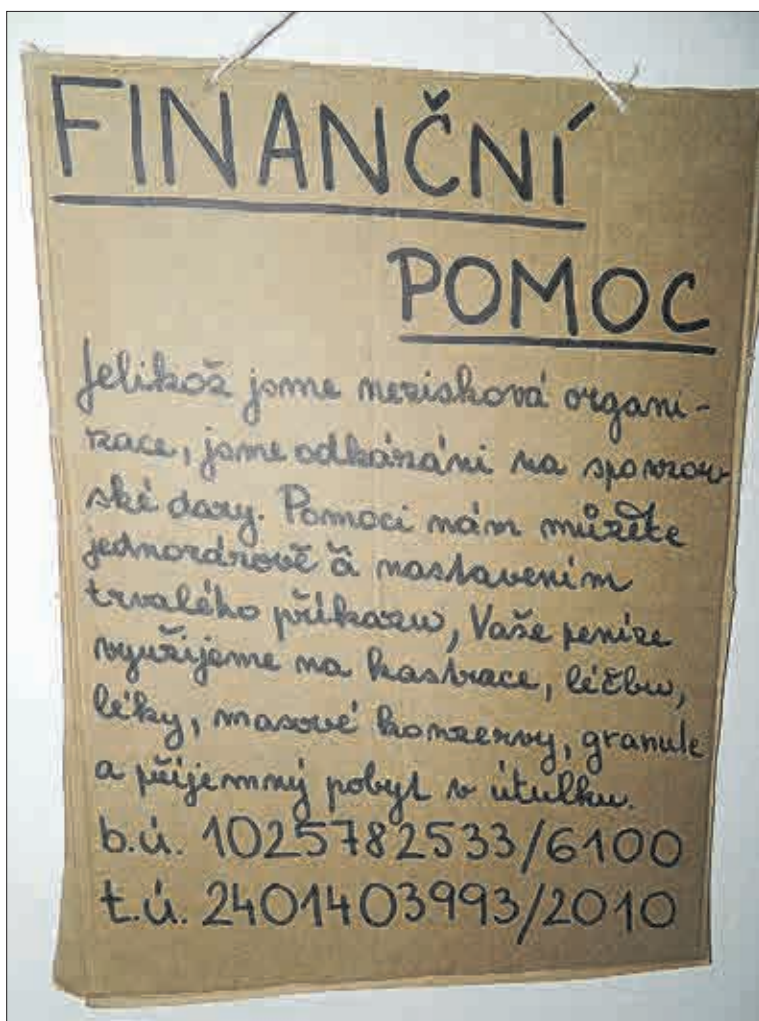 FINANČNÍ
POMOC
Jelikož jsme nezisková organi-
zace, jsme odkázáni na sponzor-
ské dary. Pomoci nám můžete
jednorázově či nastavením
trvalého příkazu, Vaše peníze
využijeme na kastrace, léčbu,
léky, masové konzervy, granule
a příjemný pobyt v útulku.
b.ú. 1025782533/6100
t.ú. 2401403993/2010